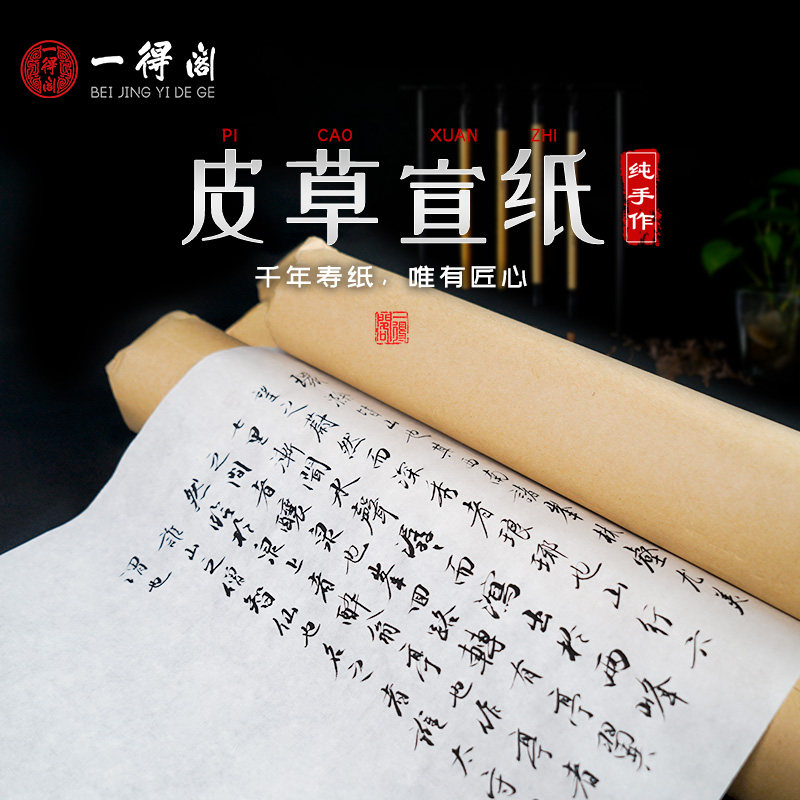 一得阁
一得阁
BEI JING YI DE GE
PI CAO XUAN ZHI
皮草宣纸
纯手作
千年寿纸，唯有匠心
一得阁
環滁皆山也其西南諸峯林壑尤美
望之蔚然而深秀者琅琊也山行六
七里漸聞水聲潺潺而瀉出於兩峰
之間者釀泉也峯回路轉有亭翼
然臨於泉上者醉翁亭也作亭者
誰山之僧智仙也名之者誰太守
謂也